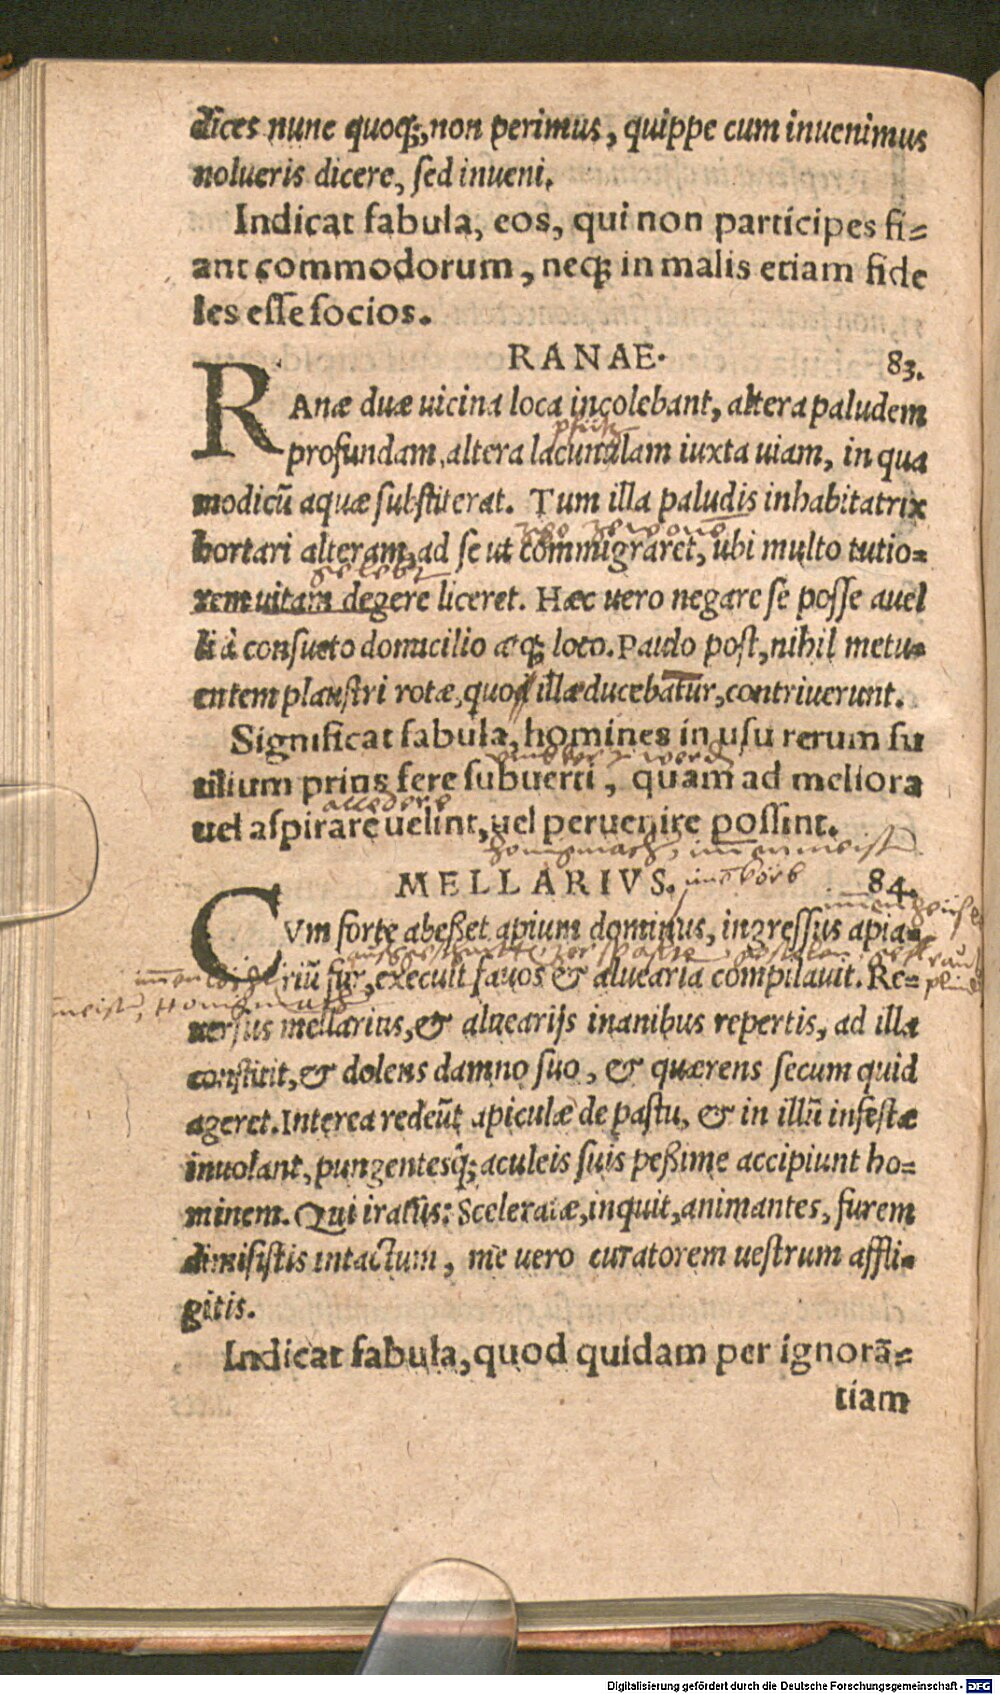 dices nunc quoq;, non perimus, quippe cum inuenimus
nolueris dicere, sed inueni.
Indicat fabula, eos, qui non participes fi=
ant commodorum, neq; in malis etiam fide
les esse socios.
RANAE. 83.
RAnæ duæ uicina loca incolebant, altera paludem
profundam, altera lacunulam iuxta uiam, in qua
modicū aquæ substiterat. Tum illa paludis inhabitatrix
hortari alteram, ad se ut commigraret, ubi multo tutio=
rem uitam degere liceret. Hæc uero negare se posse auel
li à consueto domicilio atq; loco. Paulo post, nihil metu=
entem plaustri rotæ, quod illæ ducebatur, contriuerunt.
Significat fabula, homines in usu rerum fu
tilium prius fere subuerti, quam ad meliora
accedere
uel aspirare uelint, uel peruenire possint.
MELLARIVS. 84.
CVm forte abeßet apium dominus, ingressus apia=
riū fur, excußit fauos & aluearia compilauit. Re=
uersus mellarius, & aluearijs inanibus repertis, ad illa
constitit, & dolens damno suo, & quærens secum quid
ageret. Interea redeūt apiculæ de pastu, & in illū infestæ
inuolant, pungentesq́; aculeis suis peßime accipiunt ho=
minem. Qui iratus: Sceleratæ, inquit, animantes, furem
dimisistis intactum, me uero curatorem uestrum affli=
gitis.
Indicat fabula, quod quidam per ignorā=
tiam
Digitalisierung gefördert durch die Deutsche Forschungsgemeinschaft - DFG